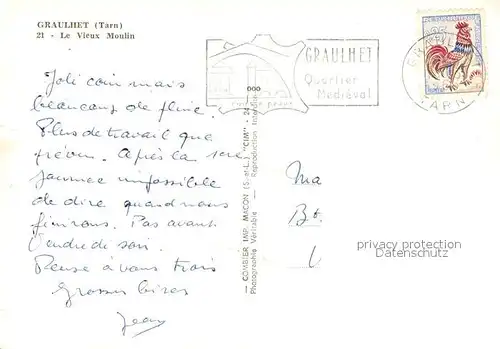 GRAULHET (Tarn)
21 - Le Vieux Moulin
GRAULHET
Quartier
Médiéval
TARN
Joli coin mais
beaucoup de pluie.
Plus de travail que
prévu. Après la 1ère
journée impossible
de dire quand nous
finirons. Pas avant
Vendredi soir.
Pense à vous trois
Grosses bises
Jean
— COMBIER IMP. MACON (S.-et-L.) "CIM" - 24
Photographie Véritable — Reproduction Interdite
Ma
privacy protection
Datenschutz